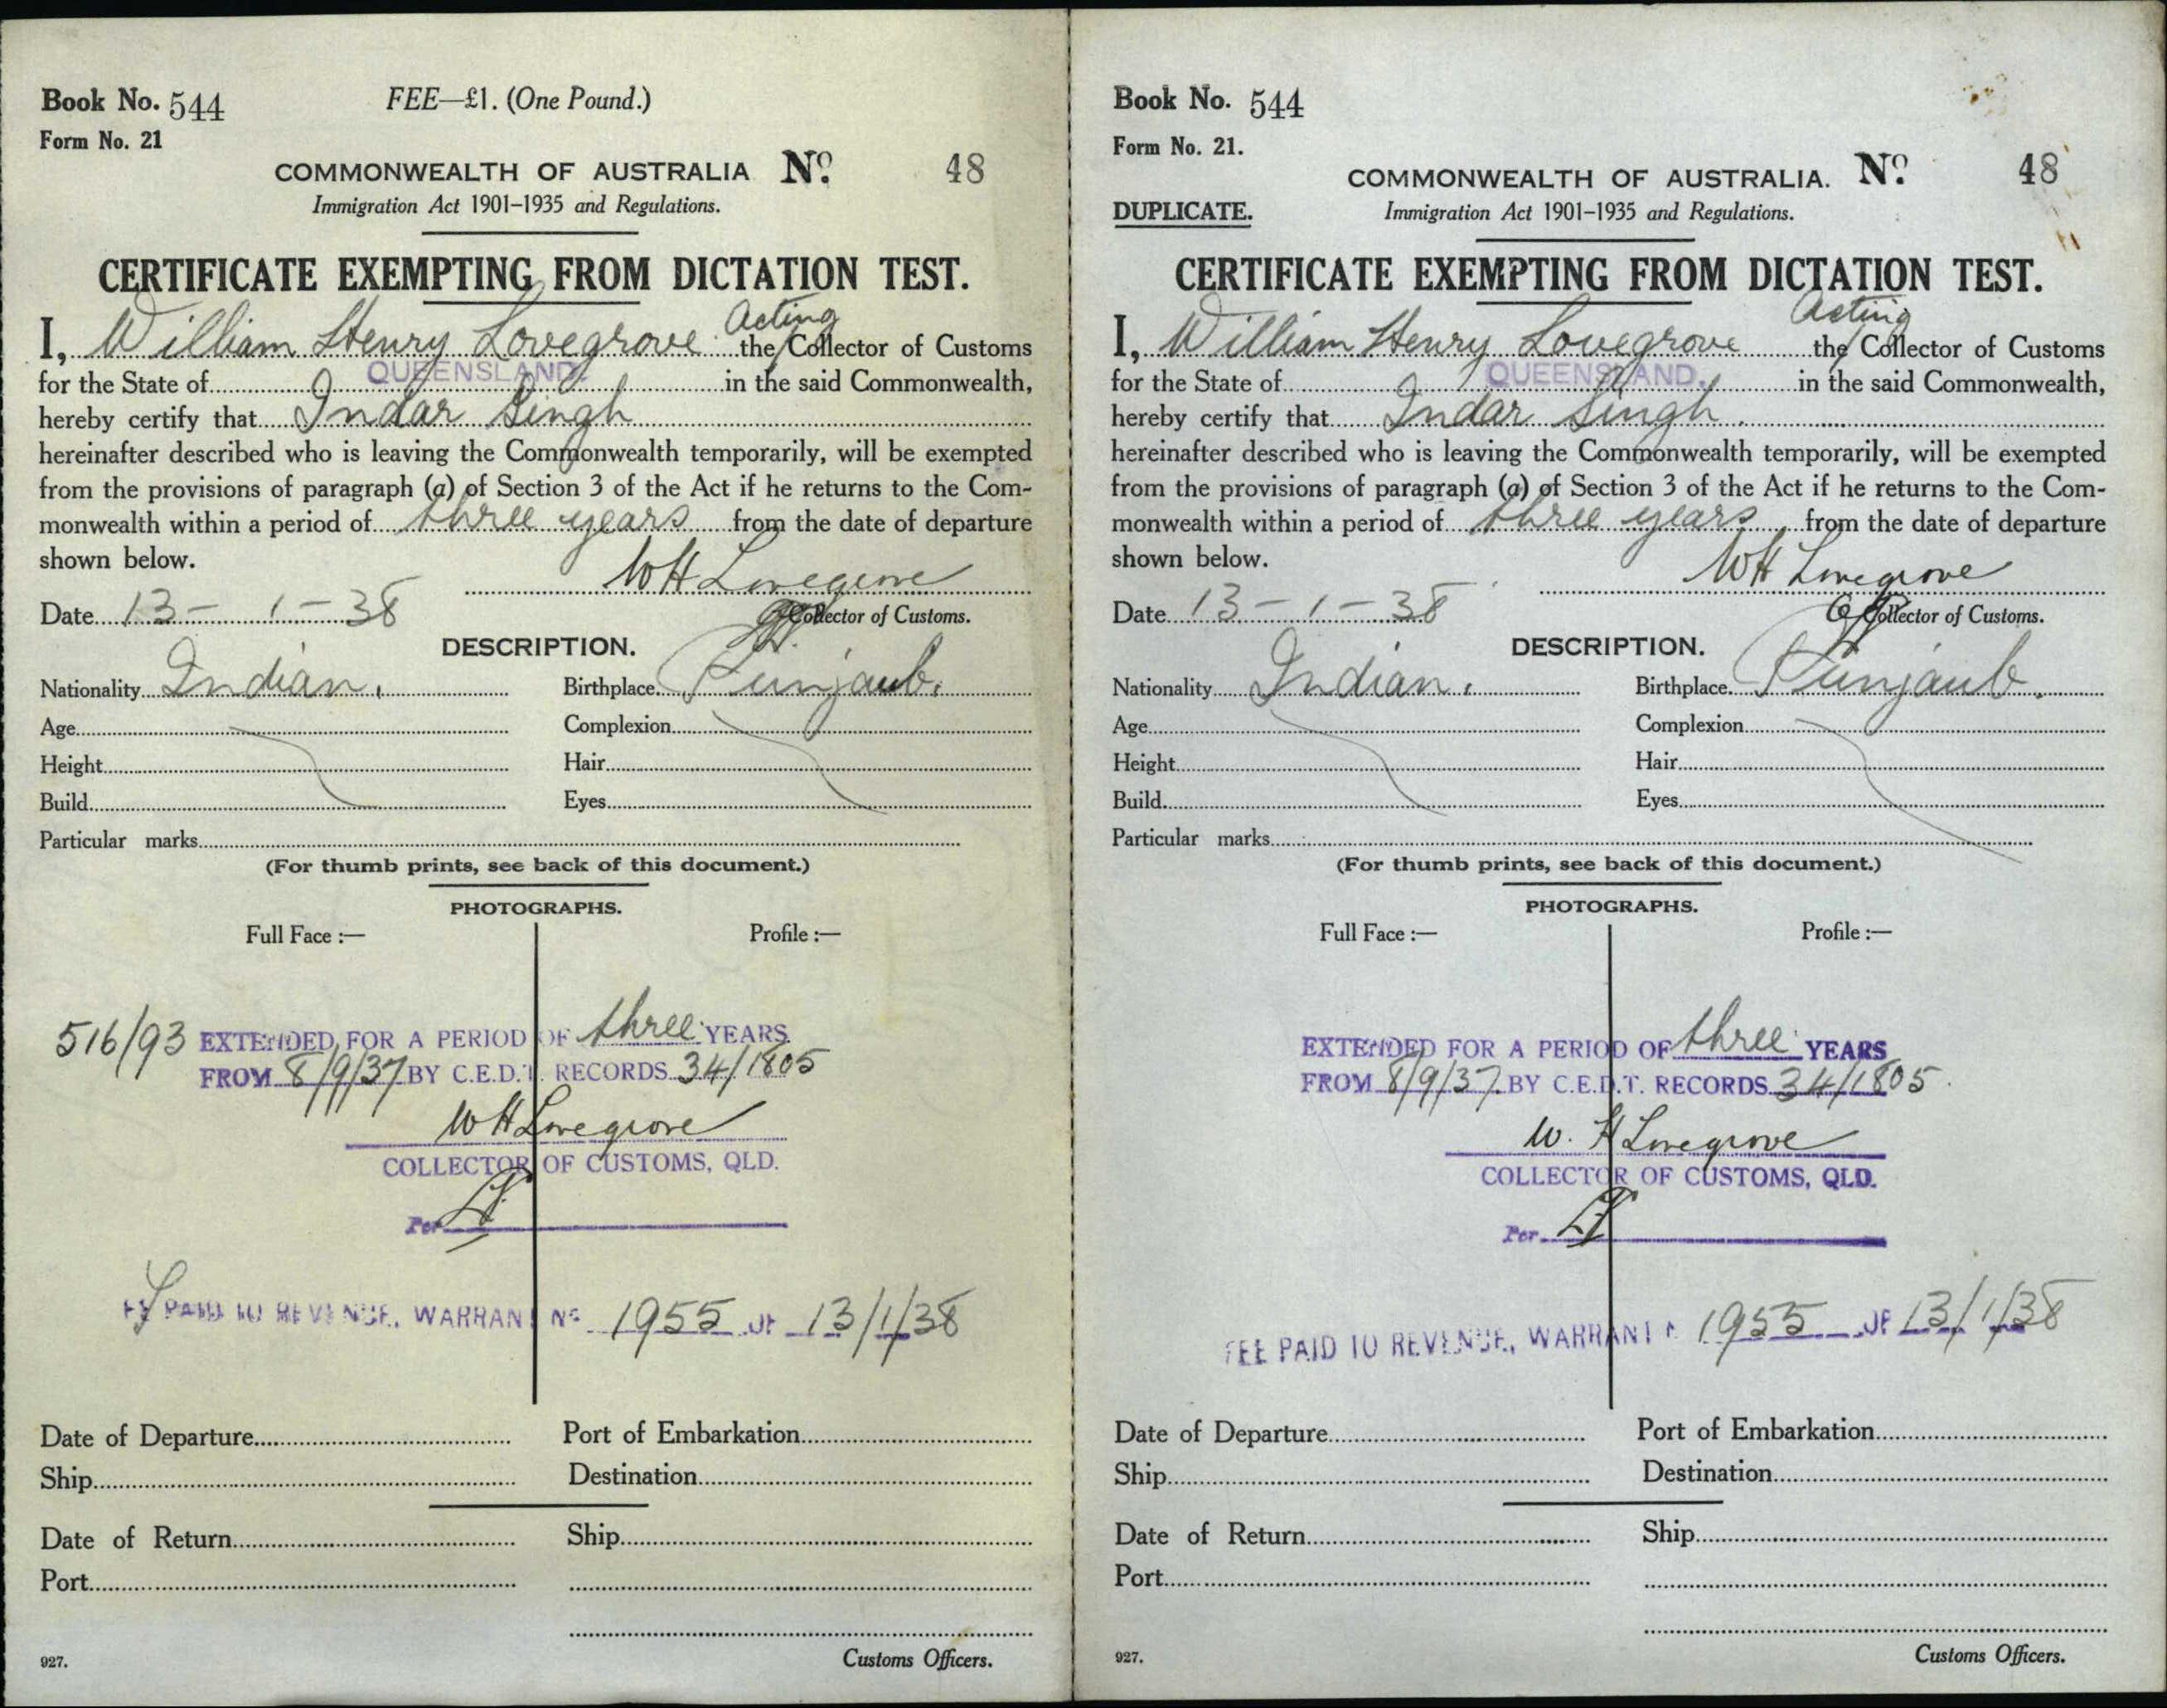 Book No. 544
FEE—£1. (One Pound.)
Form No. 21
COMMONWEALTH OF AUSTRALIA No. 48
Immigration Act 1901-1935 and Regulations.
CERTIFICATE EXEMPTING FROM DICTATION TEST.
Acting
I, William Henry Lovegrove the Collector of Customs
for the State of QUEENSLAND. in the said Commonwealth,
hereby certify that Indar Singh
hereinafter described who is leaving the Commonwealth temporarily, will be exempted
from the provisions of paragraph (a) of Section 3 of the Act if he returns to the Com-
monwealth within a period of three years from the date of departure
shown below.
WH Lovegrove
Date 13-1-38
Collector of Customs.
DESCRIPTION.
Nationality Indian. Birthplace Punjaub.
Age Complexion
Height Hair
Build Eyes
Particular marks
(For thumb prints, see back of this document.)
PHOTOGRAPHS.
Full Face :— Profile :—
516/93 EXTENDED FOR A PERIOD OF three YEARS
FROM 8/9/37 BY C.E.D.T. RECORDS 34/1805
WH Lovegrove
COLLECTOR OF CUSTOMS, QLD.
Per
PAID TO REVENUE, WARRANT No 1955 OF 13/1/38
Date of Departure Port of Embarkation
Ship Destination
Date of Return Ship
Port
927. Customs Officers.
Book No. 544
Form No. 21.
COMMONWEALTH OF AUSTRALIA. No. 48
DUPLICATE. Immigration Act 1901-1935 and Regulations.
CERTIFICATE EXEMPTING FROM DICTATION TEST.
Acting
I, William Henry Lovegrove the Collector of Customs
for the State of QUEENSLAND. in the said Commonwealth,
hereby certify that Indar Singh.
hereinafter described who is leaving the Commonwealth temporarily, will be exempted
from the provisions of paragraph (a) of Section 3 of the Act if he returns to the Com-
monwealth within a period of three years from the date of departure
shown below.
WH Lovegrove
Date 13-1-38
Collector of Customs.
DESCRIPTION.
Nationality Indian. Birthplace Punjaub.
Age Complexion
Height Hair
Build Eyes
Particular marks
(For thumb prints, see back of this document.)
PHOTOGRAPHS.
Full Face :— Profile :—
EXTENDED FOR A PERIOD OF three YEARS
FROM 8/9/37 BY C.E.D.T. RECORDS 34/1805
W. H Lovegrove
COLLECTOR OF CUSTOMS, QLD.
Per
FEE PAID TO REVENUE, WARRANT 1955 OF 13/1/38
Date of Departure Port of Embarkation
Ship Destination
Date of Return Ship
Port
927. Customs Officers.